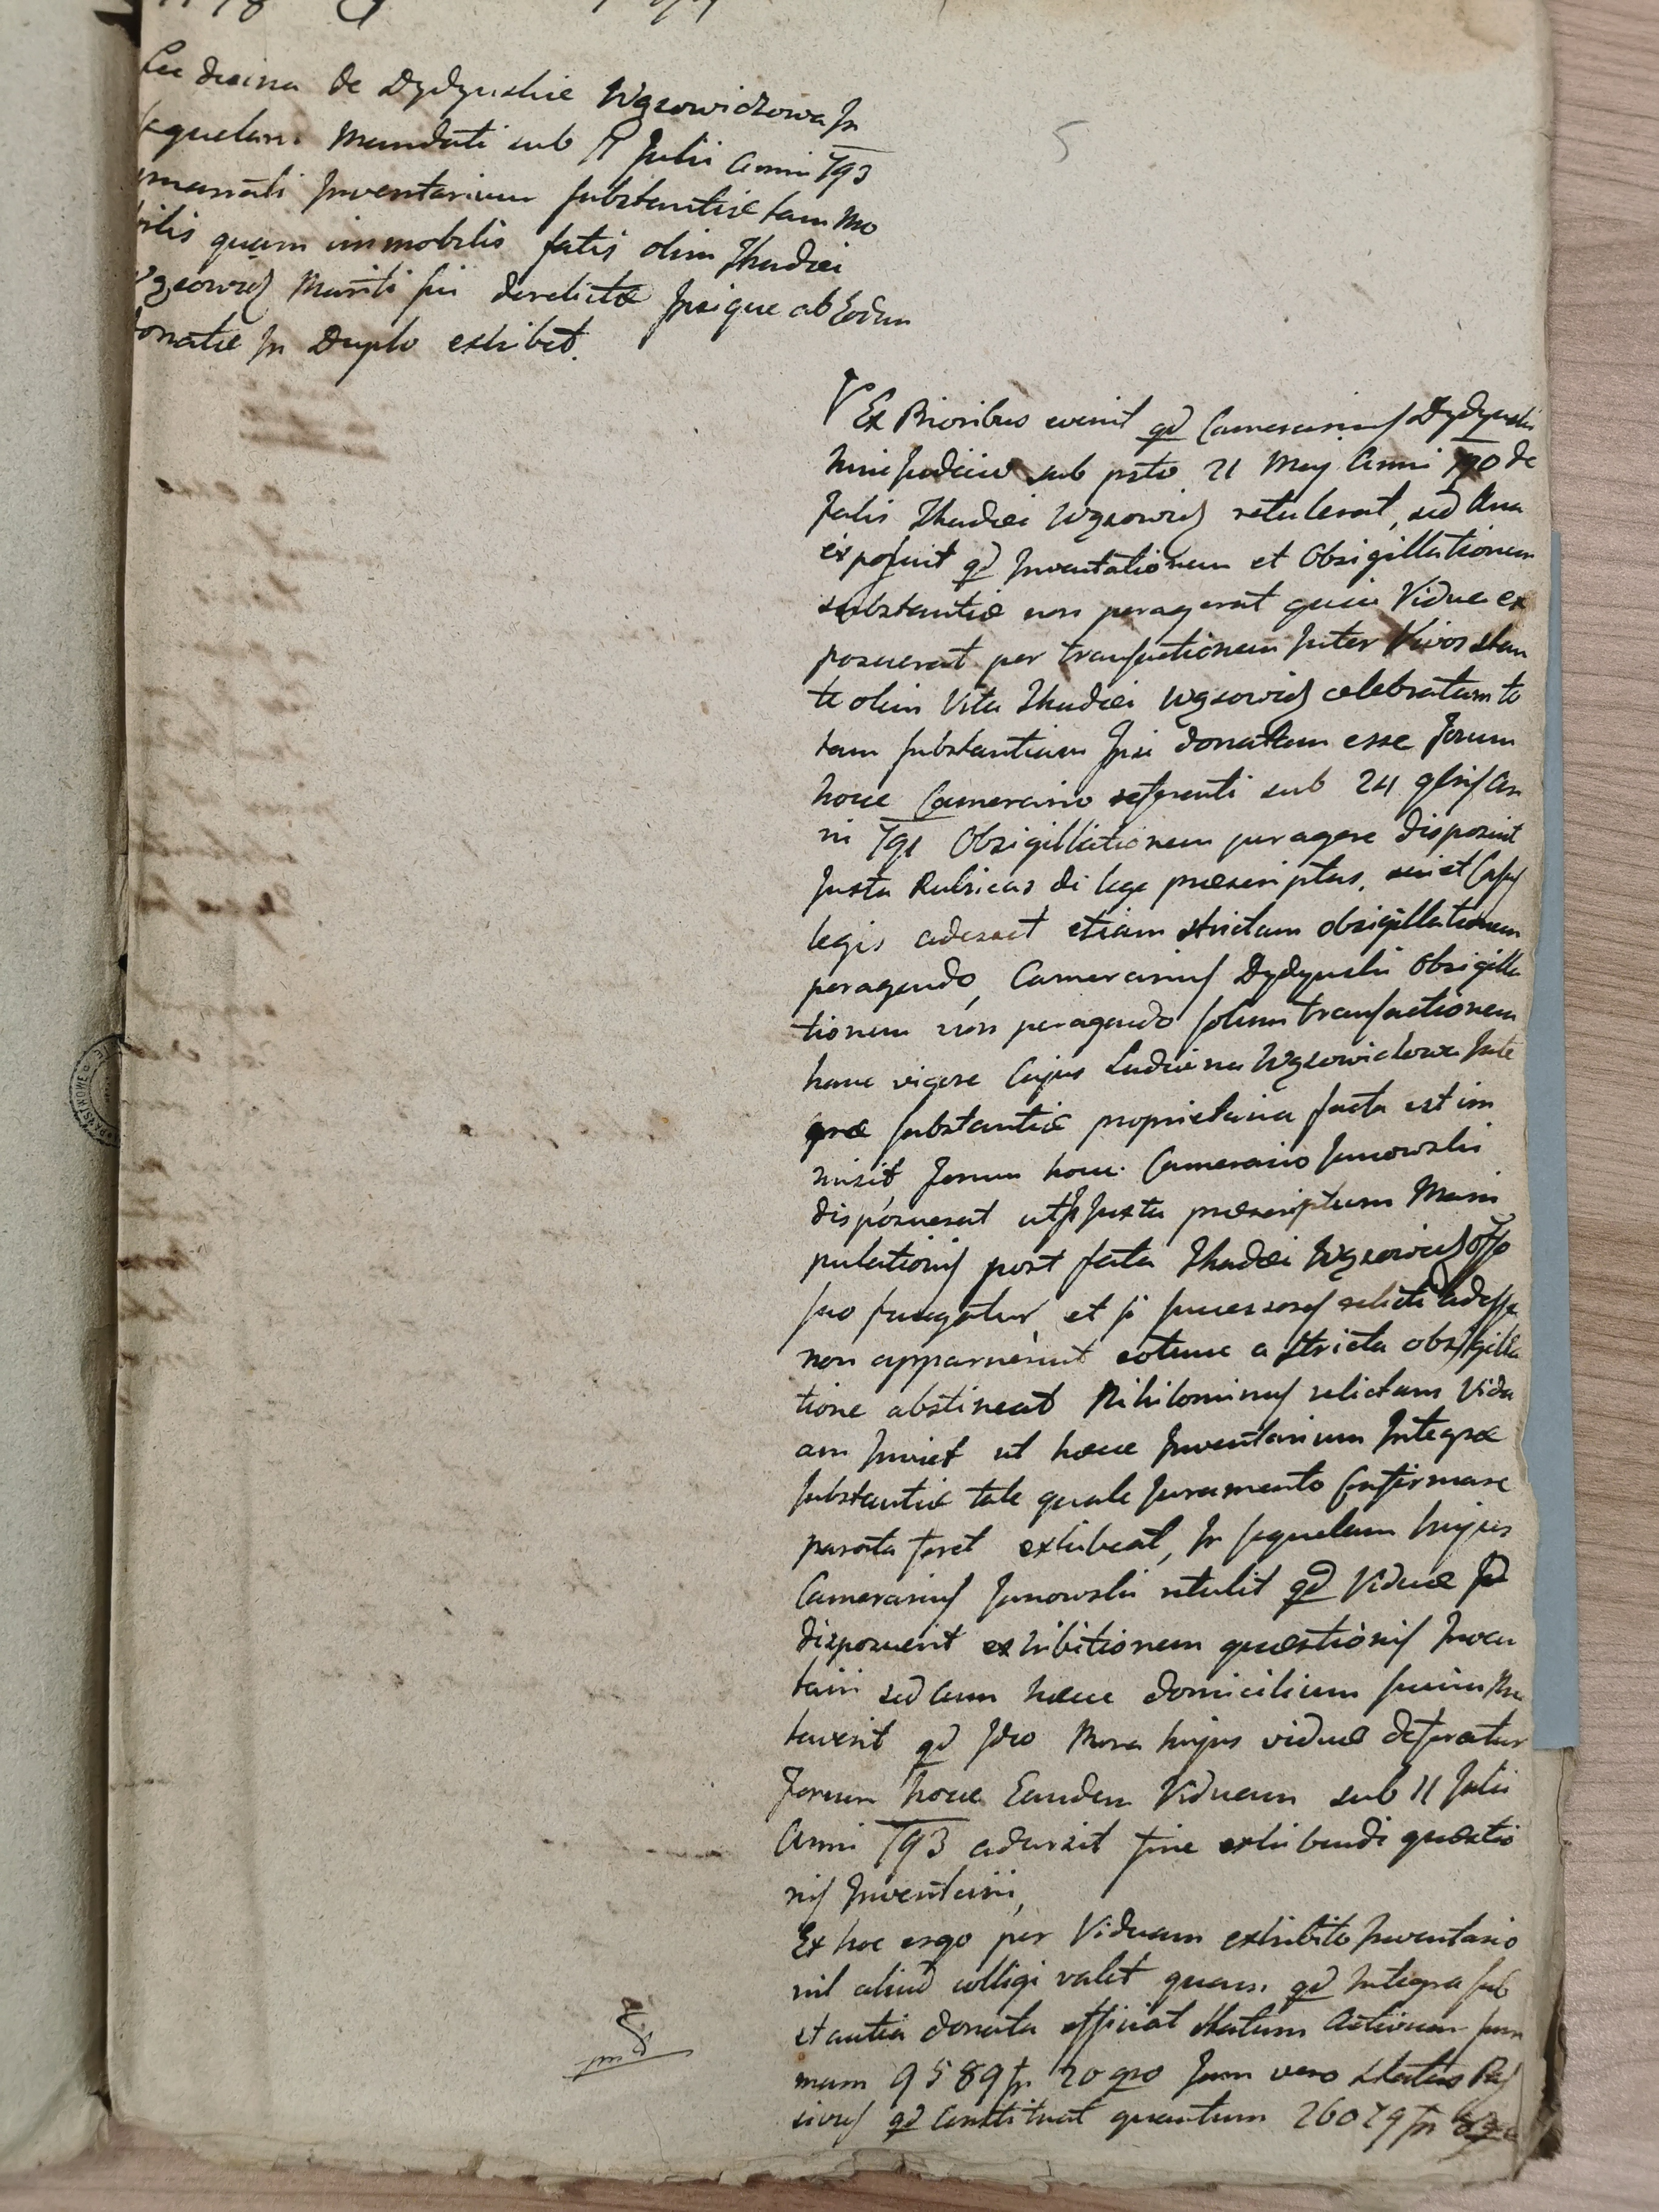 5
Ludvina de Dydynskie Wąsowiczowa In
sequelam Mandati sub 11 Julii Anni 793
emanati Inventarium substantiæ tam Mo
bilis quam immobilis fatis olim Thadæi
Wąsowicz Mariti sui derelictæ Ipsique ab Eodem
donatæ In Duplo exhibet.
Ex Prioribus evenit qd Camerarius Dydynski
huic Judicio sub psto 21 May Anni 790 de
fatis Thadæi Wąsowicz retulerat, sed Una
exposuit qd Inventationem et Obsigillationem
substantiæ non peragerat quia Vidua ex
posuerat per transactionem Inter Vivos stan
te olim Vita Thadæi Wąsowicz celebratam to
tam substantiam Ipsi donatam esse Forum
hocce Camerario referenti sub 24 An
ni 791 Obsigillationem peragere disposuit
Juxta Rubricas de lege præscriptas, Casus
legis adesset etiam strictam obsigillationem
peragendo, Camerarius Dydynski Obsigilla
tionem non peragendo solum transactionem
hanc vigore Cujus Ludvina Wąsowiczowa Inte
græ substantiæ proprietaria facta est im
misit Forum hocce Camerario Janowski
disposuerat ut Juxta præscriptum Mani
pulationis post fata Thadæi Wąsowicz offo
suo fungatur et si successores relicti adesse
non apparuerint eotunc a stricta obsigilla
tione abstineat Nihilominus relictam Vidu
am Inviet ut hæcce Inventarium Integræ
substantiæ tale quale Juramento Confirmare
parata foret exhibeat, In sequelam hujus
Camerarius Janowski retulit qd Viduæ
disposuerit exhibitionem quæstionis Inven
tarii sed cum hæcce domicilium suum Mu
taverit qd Ideo Mora hujus viduæ deferatur
Forum hocce Eandem Viduam sub 11 Julii
Anni 793 adursit fine exhibendi quæstio
nis Inventarii,
Ex hoc ergo per Viduam exhibito Inventario
nil aliud colligi valet quam qd Integra sub
stantia donata efficiat statum Activum sum
mam 9589 fr 20 gro Jam vero Status Pas
sivus qd Constituat quantum 26079 fr